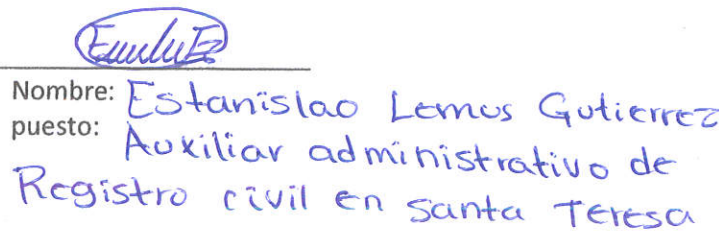 Nombre: Estanislao Lemus Gutierrez
puesto: Auxiliar administrativo de
Registro civil en santa Teresa